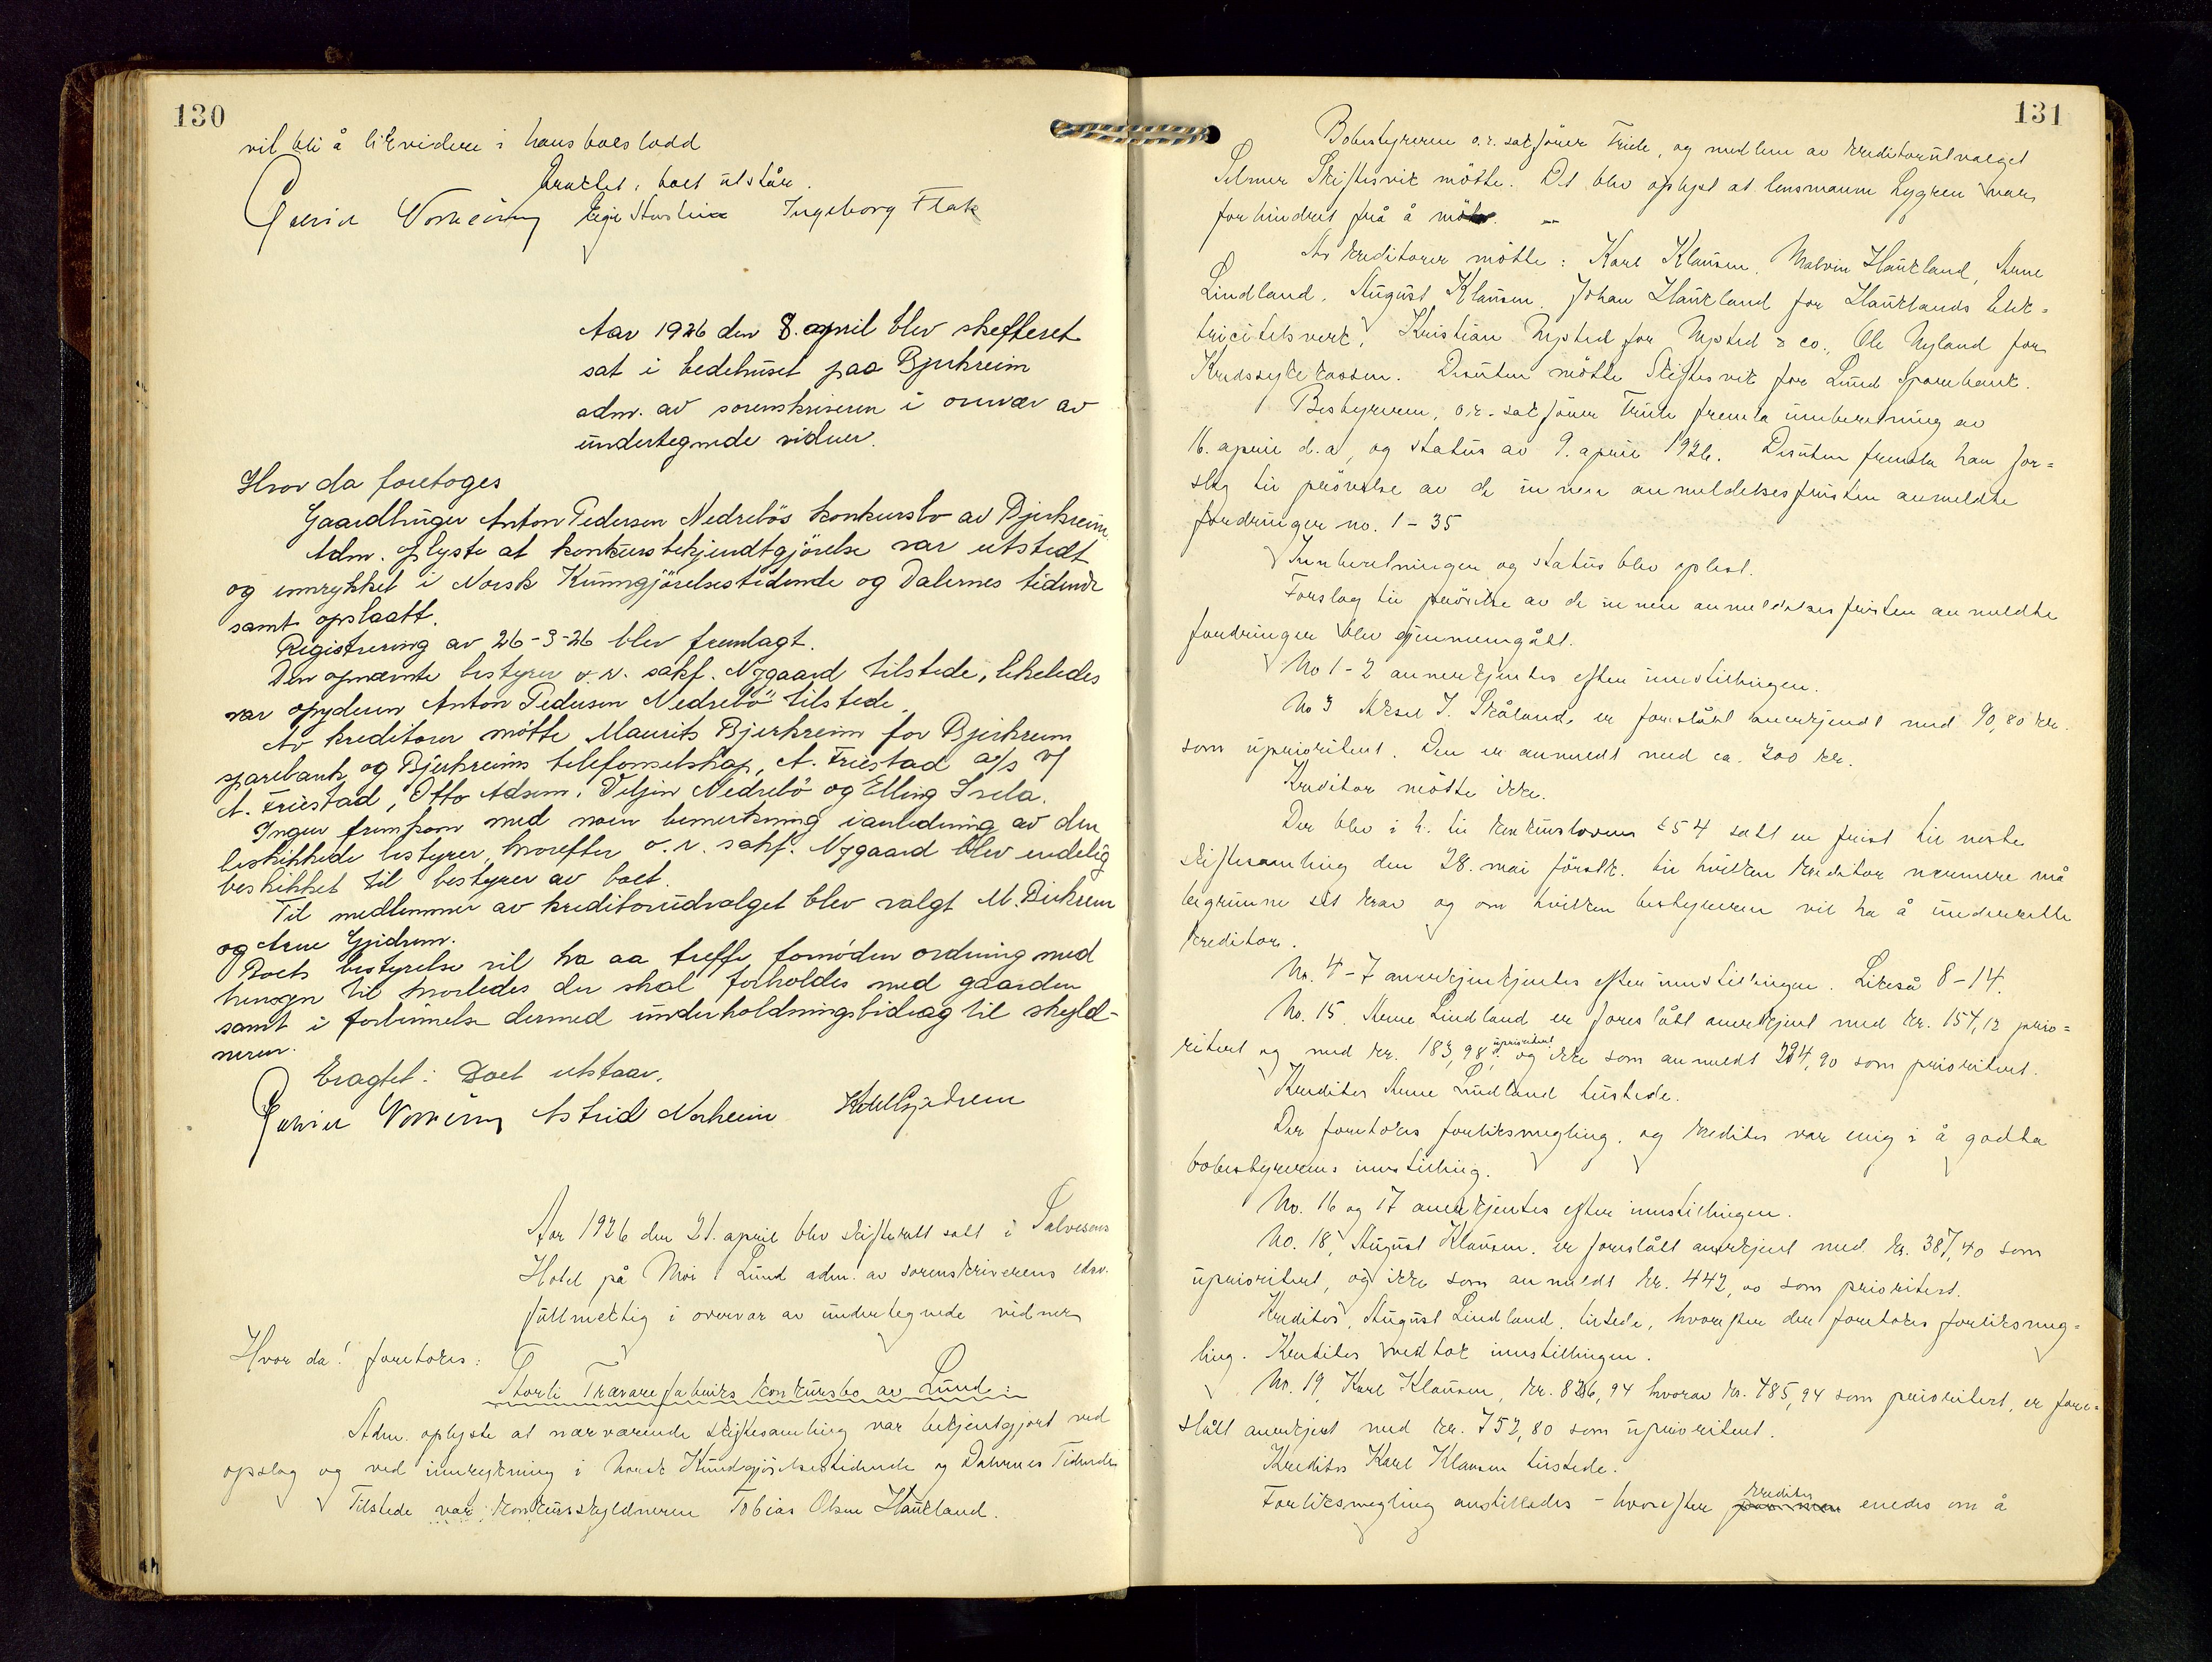 130
vil bli å likvidere i hans boeslodd
Eraktet: boet utstår.
Ingeborg Flak
Aar 1926 den 8. april blev skifteret
sat i bedehuset paa Bjerkreim
adm. av sorenskriveren i overvær av
undertegnede vidner.
Hvor da foretoges
Gaardbruger Anton Pedersen Nedrebös konkursbo av Bjerkreim.
Adm. oplyste at konkursbekjendtgjörelse var utstedt
og innrykket i Norsk Kunngjörelsestidende og Dalernes tidende
samt opslaatt.
Registrering av 26-3-26 blev fremlagt.
Den opnævnte bestyrer o.r. sakf. Nygaard tilstede, likeledes
var opyderen Anton Pedersen Nedrebö tilstede.
Av kreditorer mötte Maurits Bjerkreim for Bjerkreim
sparebank og Bjerkreims telefonselskap, A. Friestad a/s v/
A. Friestad, Otto Adsem, Viljen Nedrebö og Elling Svela.
Ingen fremkom med noen bemerkning i anledning av den
beskikkede bestyrer, hvorefter o.r. sakf. Nygaard blev endelig
beskikket til bestyrer av boet.
Til medlemmer av kreditorudvalget blev valgt M. Birkrem
og Arne Gjedrem.
Boets bestyrelse vil ha aa treffe fornöden ordning med
hensyn til hvorledes der skal forholdes med gaarden
samt i forbinnelse dermed underholdningsbidrag til skyld-
neren.
Eragtet: Boet utstaar.
Astrid Norheim Gjedrem
Aar 1926 den 21. april blev skifterett satt i Salvesens
Hotel på Moi i Lund adm. av sorenskriverens edsv.
fullmektig i overvær av undertegnede vidner
Hvor da! foretokes:
Storli Trævarefabriks konkursbo av Lund:
Adm. oplyste at nærværende skiftesamling var bekjentgjort ved
opslag og ved innrykning i Norsk Kundgjörelsestidende og Dalernes Tidende
Tilstede var konkursskyldneren Tobias Olsen Haukland.
131
Bobestyreren o.r. sakförer Friele, og medlem av kreditorutvalget
Selmer Skiftesvik mötte. Det blev oplyst at lensmann Lygren var
forhindret frå å möte. –
Av kreditorer mötte: Karl Klausen, Malvin Haukland, Arne
Lindland, August Klausen, Johan Haukland for Hauklands Elek=
tricitetsverk, Kristian Nysted for Nysted & co., Ole Nyland for
Kredssykekassen. Desuten mötte Skiftesvik for Lund Sparebank.
Bestyreren, o.r. sakförer Friele fremla innberetning av
16. april d.a, og status av 9. april 1926. Desuten fremla han for=
slag til prövelse av de innen anmeldelsesfristen anmeldte
fordringer no. 1 – 35
Innberetningen og status blev oplest.
Forslag til prövelse av de innen anmeldelsesfristen anmeldte
fordringer blev gjennemgått.
No 1-2 annerkjentes efter innstillingen.
No 3 Aksel J. Skåland, er foreslått anerkjendt med 90,80 kr.
som uprioritert. Den er anmeldt med ca. 200 kr.
Kreditor mötte ikke.
Der blev i h. til konkurslovens § 54 satt en frist til neste
skiftesamling den 28. mai förstk. til hvilken kreditor nærmere må
begrunne sit krav og om hvilken bestyreren vil ha å underrette
kreditor.
No. 4-7 anerkjenkjentes efter innstillingen. Likeså 8-14.
No. 15. Arne Lindland er foreslått anerkjent med kr. 154,12 prio=
ritert og med kr. 183,98 uprioritert og ikke som anmeldt 294,90 som prioritert.
Kreditor Arne Lindland tilstede.
Der foretokes forliksmegling, og kreditor var enig i å godta
bobestyrerens innstilling.
No. 16 og 17 anerkjentes efter innstillingen.
No. 18, August Klausen, er foreslått anerkjent med kr. 387,40 som
uprioritert, og ikke som anmeldt kr. 442,00 som prioritert.
Kreditor, August Lindland, tilstede, hvorefter der foretokes forliksmeg=
ling. Kreditor vedtok innstillingen.
No. 19, Karl Klausen, kr. 826,94 hvorav kr. 485,94 som prioritert, er fore=
slått anerkjent med kr. 752,80 som uprioritert.
Kreditor Karl Klausen tilstede.
Forliksmegling anstilledes – hvorefter kreditor enedes om å